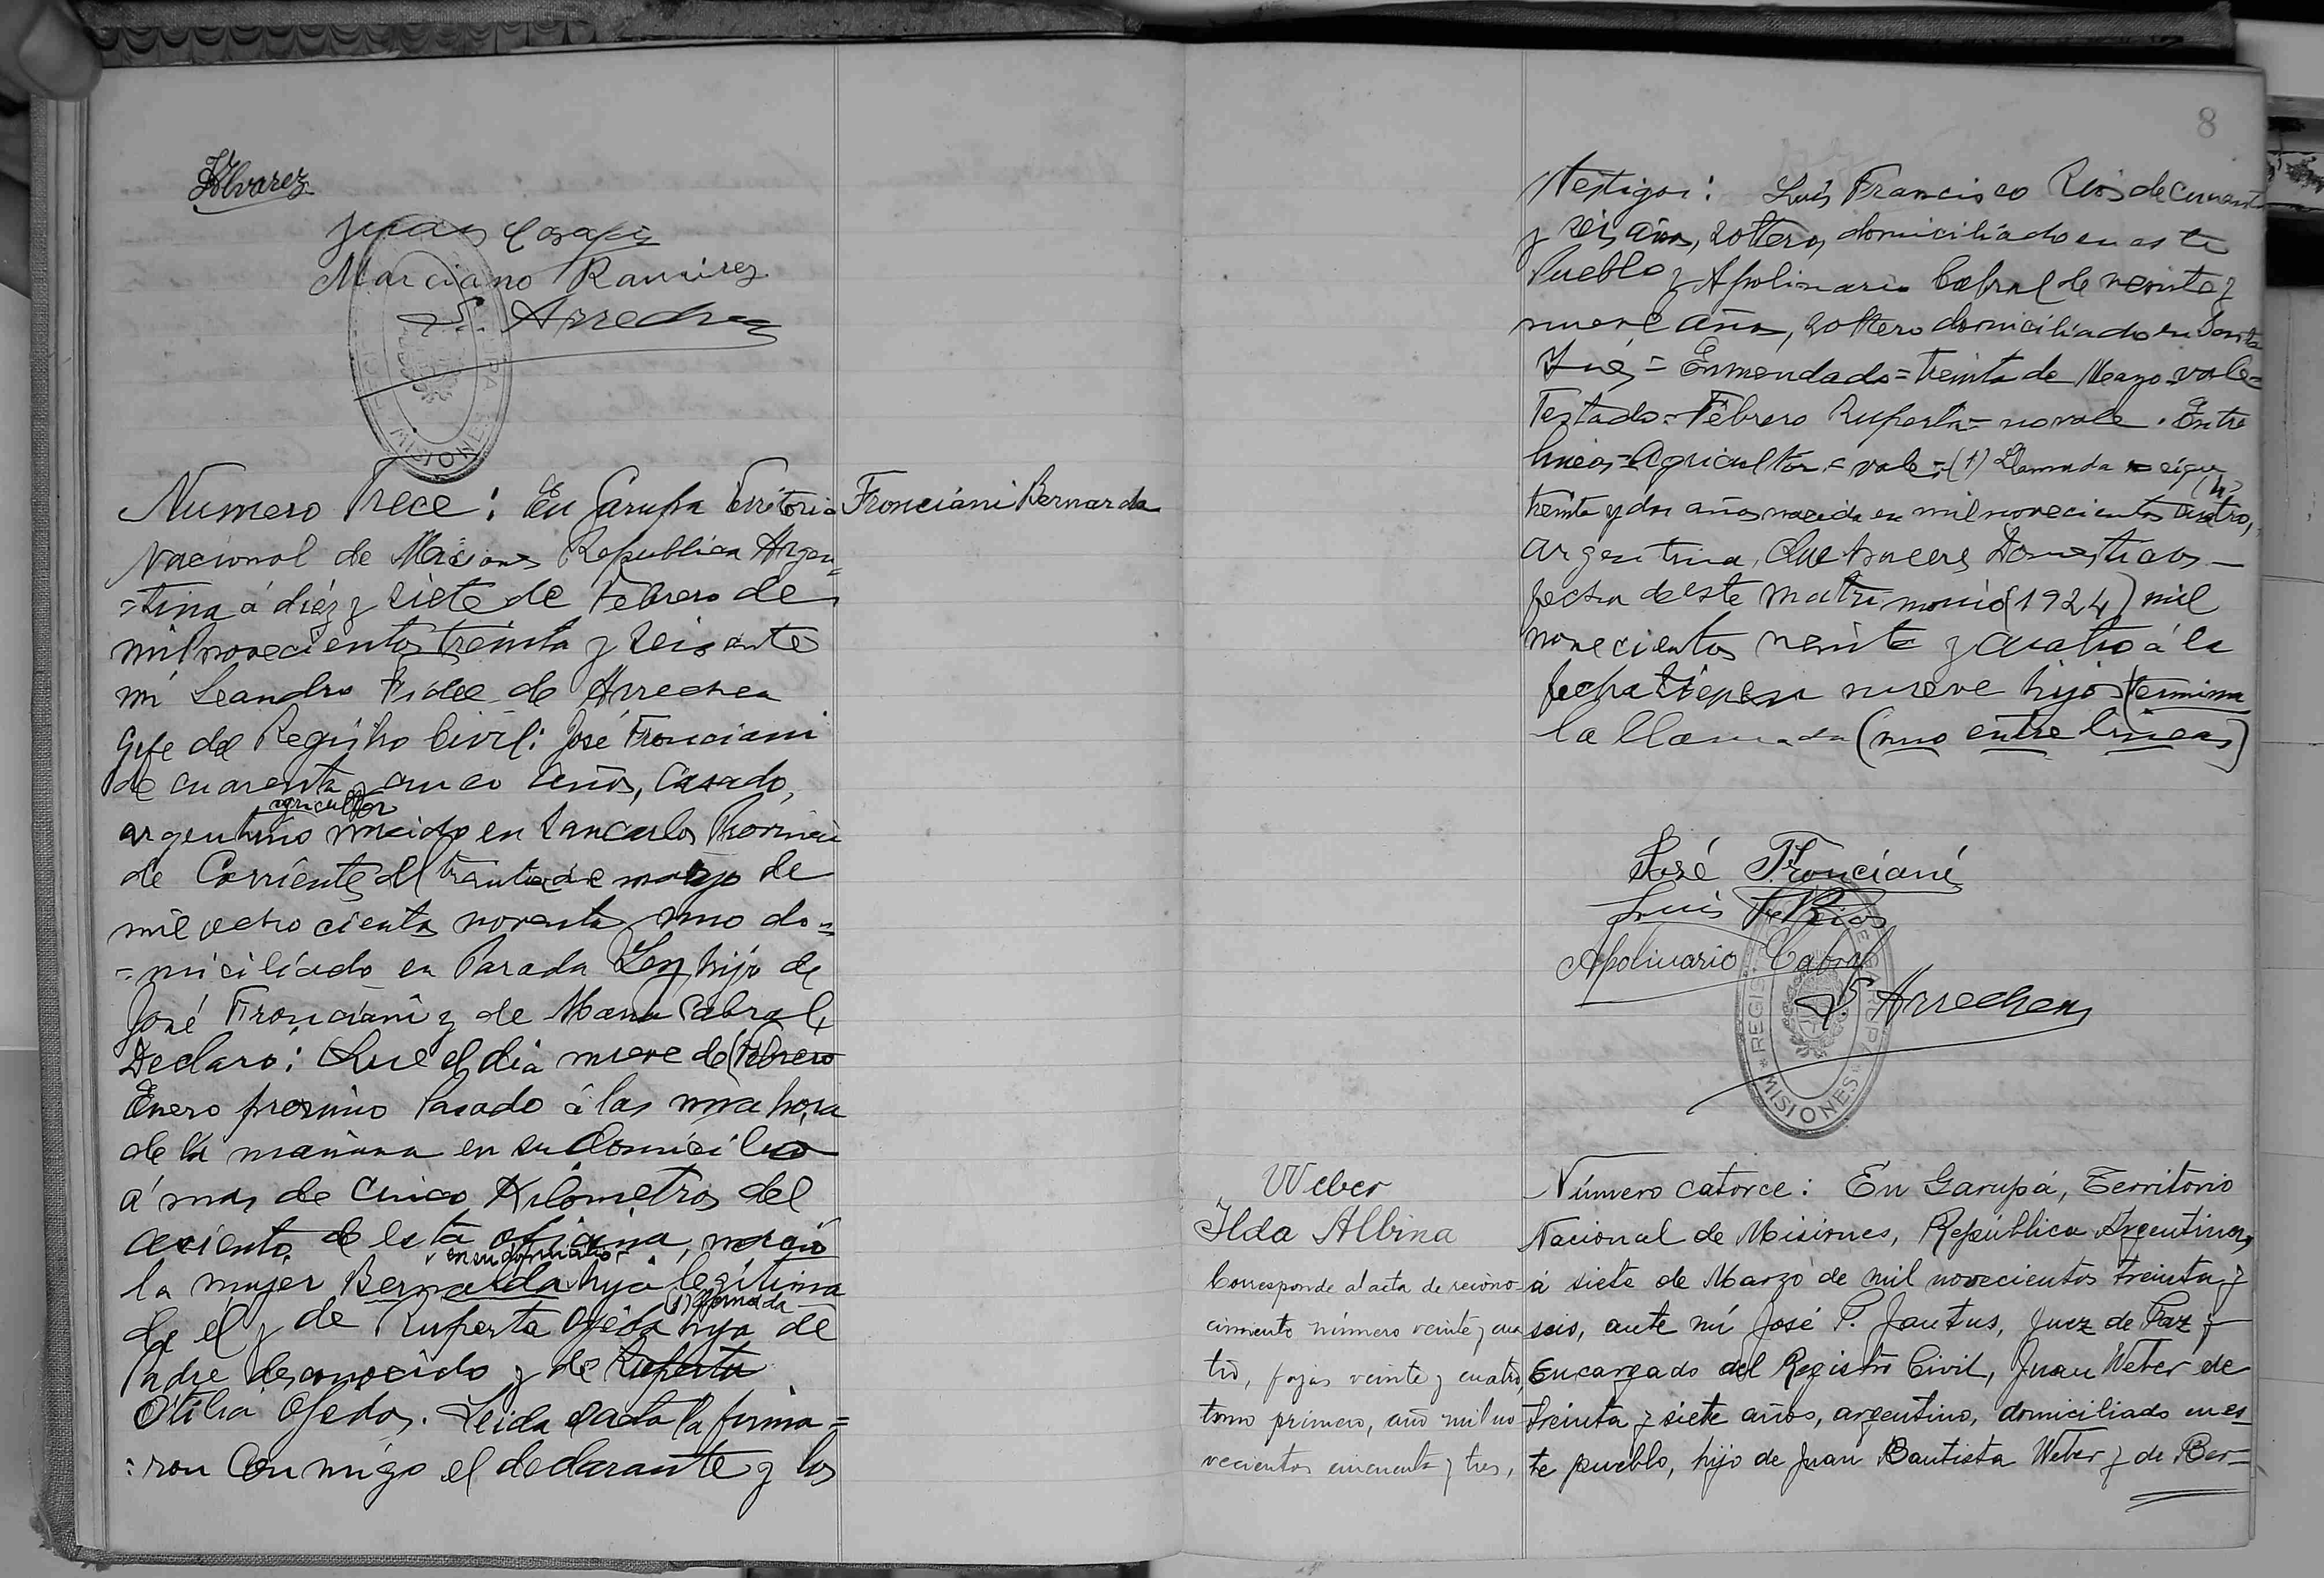 Alvarez
Juan
Marciano Ramirez
L. Arrechea
MISIONES
Numero Trece: En Garupa Territorio
Fronciani Bernarda
Nacional de Misiones Republica Argen=
=tina á diéz y siete de Febrero de
mil novecientos treinta y seis ante
mi Leandro Fidel de Arrechea
Gefe del Registro Civil: José Fronciani
de cuarenta y cinco años, Casado,
agricultor
argentino nacido en San Carlos Provincia
de Corrientes el treinta de marzo de
mil ocho cientos noventa y uno do=
=miciliado en Parada Leis hijo de
José Fronciani y de Maria Cabral,
Declaro: Que el dia nueve de (Febrero
Enero proximo Pasado á las una hora
de la mañana en su domicilio
á mas de cinco Kilometros del
aciento de esta oficina, nació
en su domicilio
la mujer Bernarda hija legítima
(1) llamada
de el y de Ruperta Ojeda hija de
Padre desconocido y de Ruperta
Otilia Ojeda. Leida el acta la firma=
=ron Conmigo el declarante y los
8
Testigos: Luis Francisco Rios de cuarenta
y seis años, soltero, domiciliado en este
Pueblo y Apolinario Cabral de veinte y
nueve años, soltero domiciliado en Santa
Inés = Enmendado = treinta de Marzo = vale =
Testado = Febrero Ruperta = no vale. Entre
lineas = agricultor = vale = (1) Llamada = sigue
treinta y dos años nacida en mil novecientos cuatro,
argentina, Quehaceres Domesticos —
fecha de este matrimonio (1924) mil
novecientos veinte y cuatro á la
fecha tienen nueve hijos (termina
la llamada (uno entre lineas)
José Fronciani
Luis F. Rios
Apolinario Cabral
L. Arrechea
REGIS GARUPA
MISIONES
Weber
Ilda Albina
Corresponde al acta de recono-
cimiento número veinte y cua
tro, fojas veinte y cuatro,
tomo primero, año mil no
vecientos cincuenta y tres,
Número catorce: En Garupá, Territorio
Nacional de Misiones, República Argentina,
á siete de Marzo de mil novecientos treinta y
seis, ante mí José P. Jantus, Juez de Paz y
Encargado del Registro Civil, Juan Weber de
treinta y siete años, argentino, domiciliado en es
te pueblo, hijo de Juan Bautista Weber y de Ber=